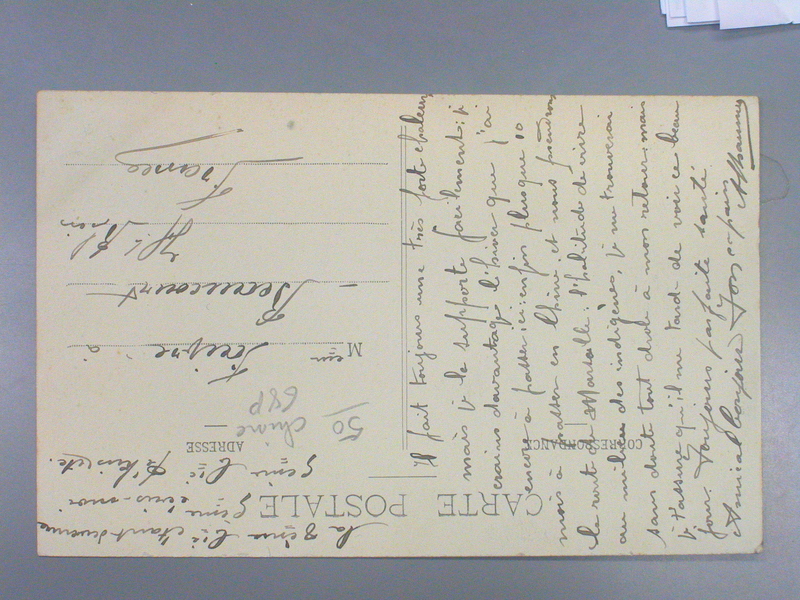 CARTE POSTALE
CORRESPONDANCE
ADRESSE
la 8ème Cie étant devenue
9ème écris-moi
9ème Cie
50
Chine
68P
Mem
à
Beaucourt
Hte Rhin
France
Il fait toujours une très forte chaleur
mais je le supporte facilement; je
crains davantage l'hiver que j'ai
encore à passer ici; enfin plus que 10
mois à passer en Chine, et nous prendrons
la route de Marseille; l'habitude de vivre
au milieu des indigènes, je me trouverai
sans doute tout drôle à mon retour, mais
je t'assure qu'il me tarde de voir ce beau
jour. Toujours parfaite santé
Amical bonjour Ton copain